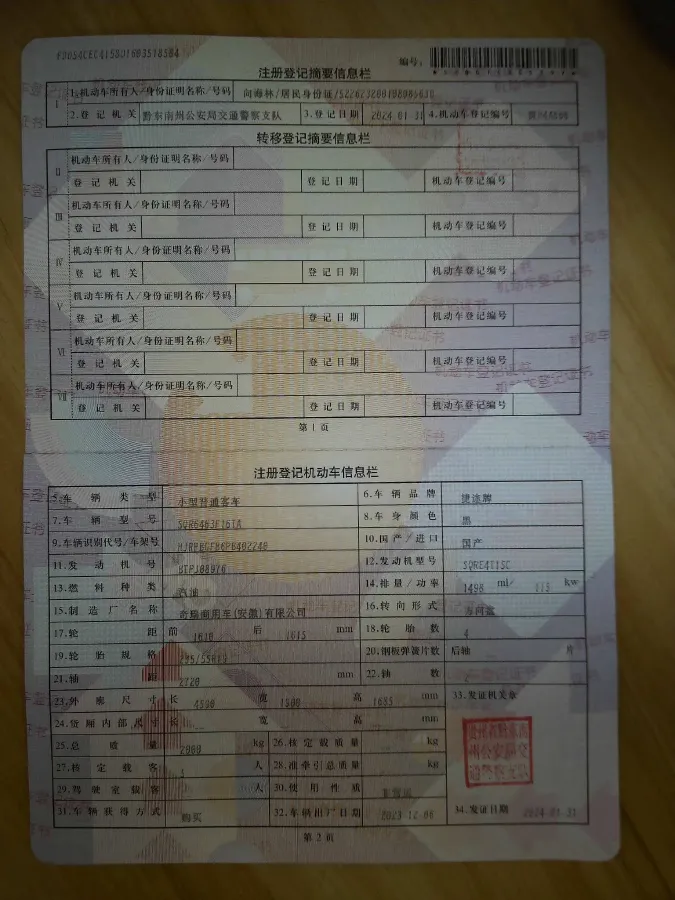 编号:
注册登记摘要信息栏
I 1.机动车所有人/身份证明名称/号码 向海林/居民身份证/
2.登记机关 黔东南州公安局交通警察支队 3.登记日期 2024-01-31 4.机动车登记编号
转移登记摘要信息栏
II 机动车所有人/身份证明名称/号码
登记机关 登记日期 机动车登记编号
III 机动车所有人/身份证明名称/号码
登记机关 登记日期 机动车登记编号
IV 机动车所有人/身份证明名称/号码
登记机关 登记日期 机动车登记编号
V 机动车所有人/身份证明名称/号码
登记机关 登记日期 机动车登记编号
VI 机动车所有人/身份证明名称/号码
登记机关 登记日期 机动车登记编号
VII 机动车所有人/身份证明名称/号码
登记机关 登记日期 机动车登记编号
第1页
注册登记机动车信息栏
5.车辆类型 小型普通客车 6.车辆品牌 捷途牌
7.车辆型号 8.车身颜色 黑
9.车辆识别代号/车架号 10.国产/进口 国产
11.发动机号 12.发动机型号 SQRE4T15C
13.燃料种类 汽油 14.排量/功率 1498 ml/ 115 kw
15.制造厂名称 奇瑞商用车(安徽)有限公司 16.转向形式 方向盘
17.轮距 前 1610 后 1615 mm 18.轮胎数 4
19.轮胎规格 20.钢板弹簧片数 后轴 片
21.轴距 2720 mm 22.轴数
23.外廓尺寸 长 4500 宽 高 1685 mm 33.发证机关章
24.货厢内部尺寸 长 宽 高 mm
25.总质量 kg 26.核定载质量 kg
27.核定载客 人 28.准牵引总质量 kg
29.驾驶室载客 人 30.使用性质 非营运
31.车辆获得方式 购买 32.车辆出厂日期 34.发证日期 2024-01-31
第2页